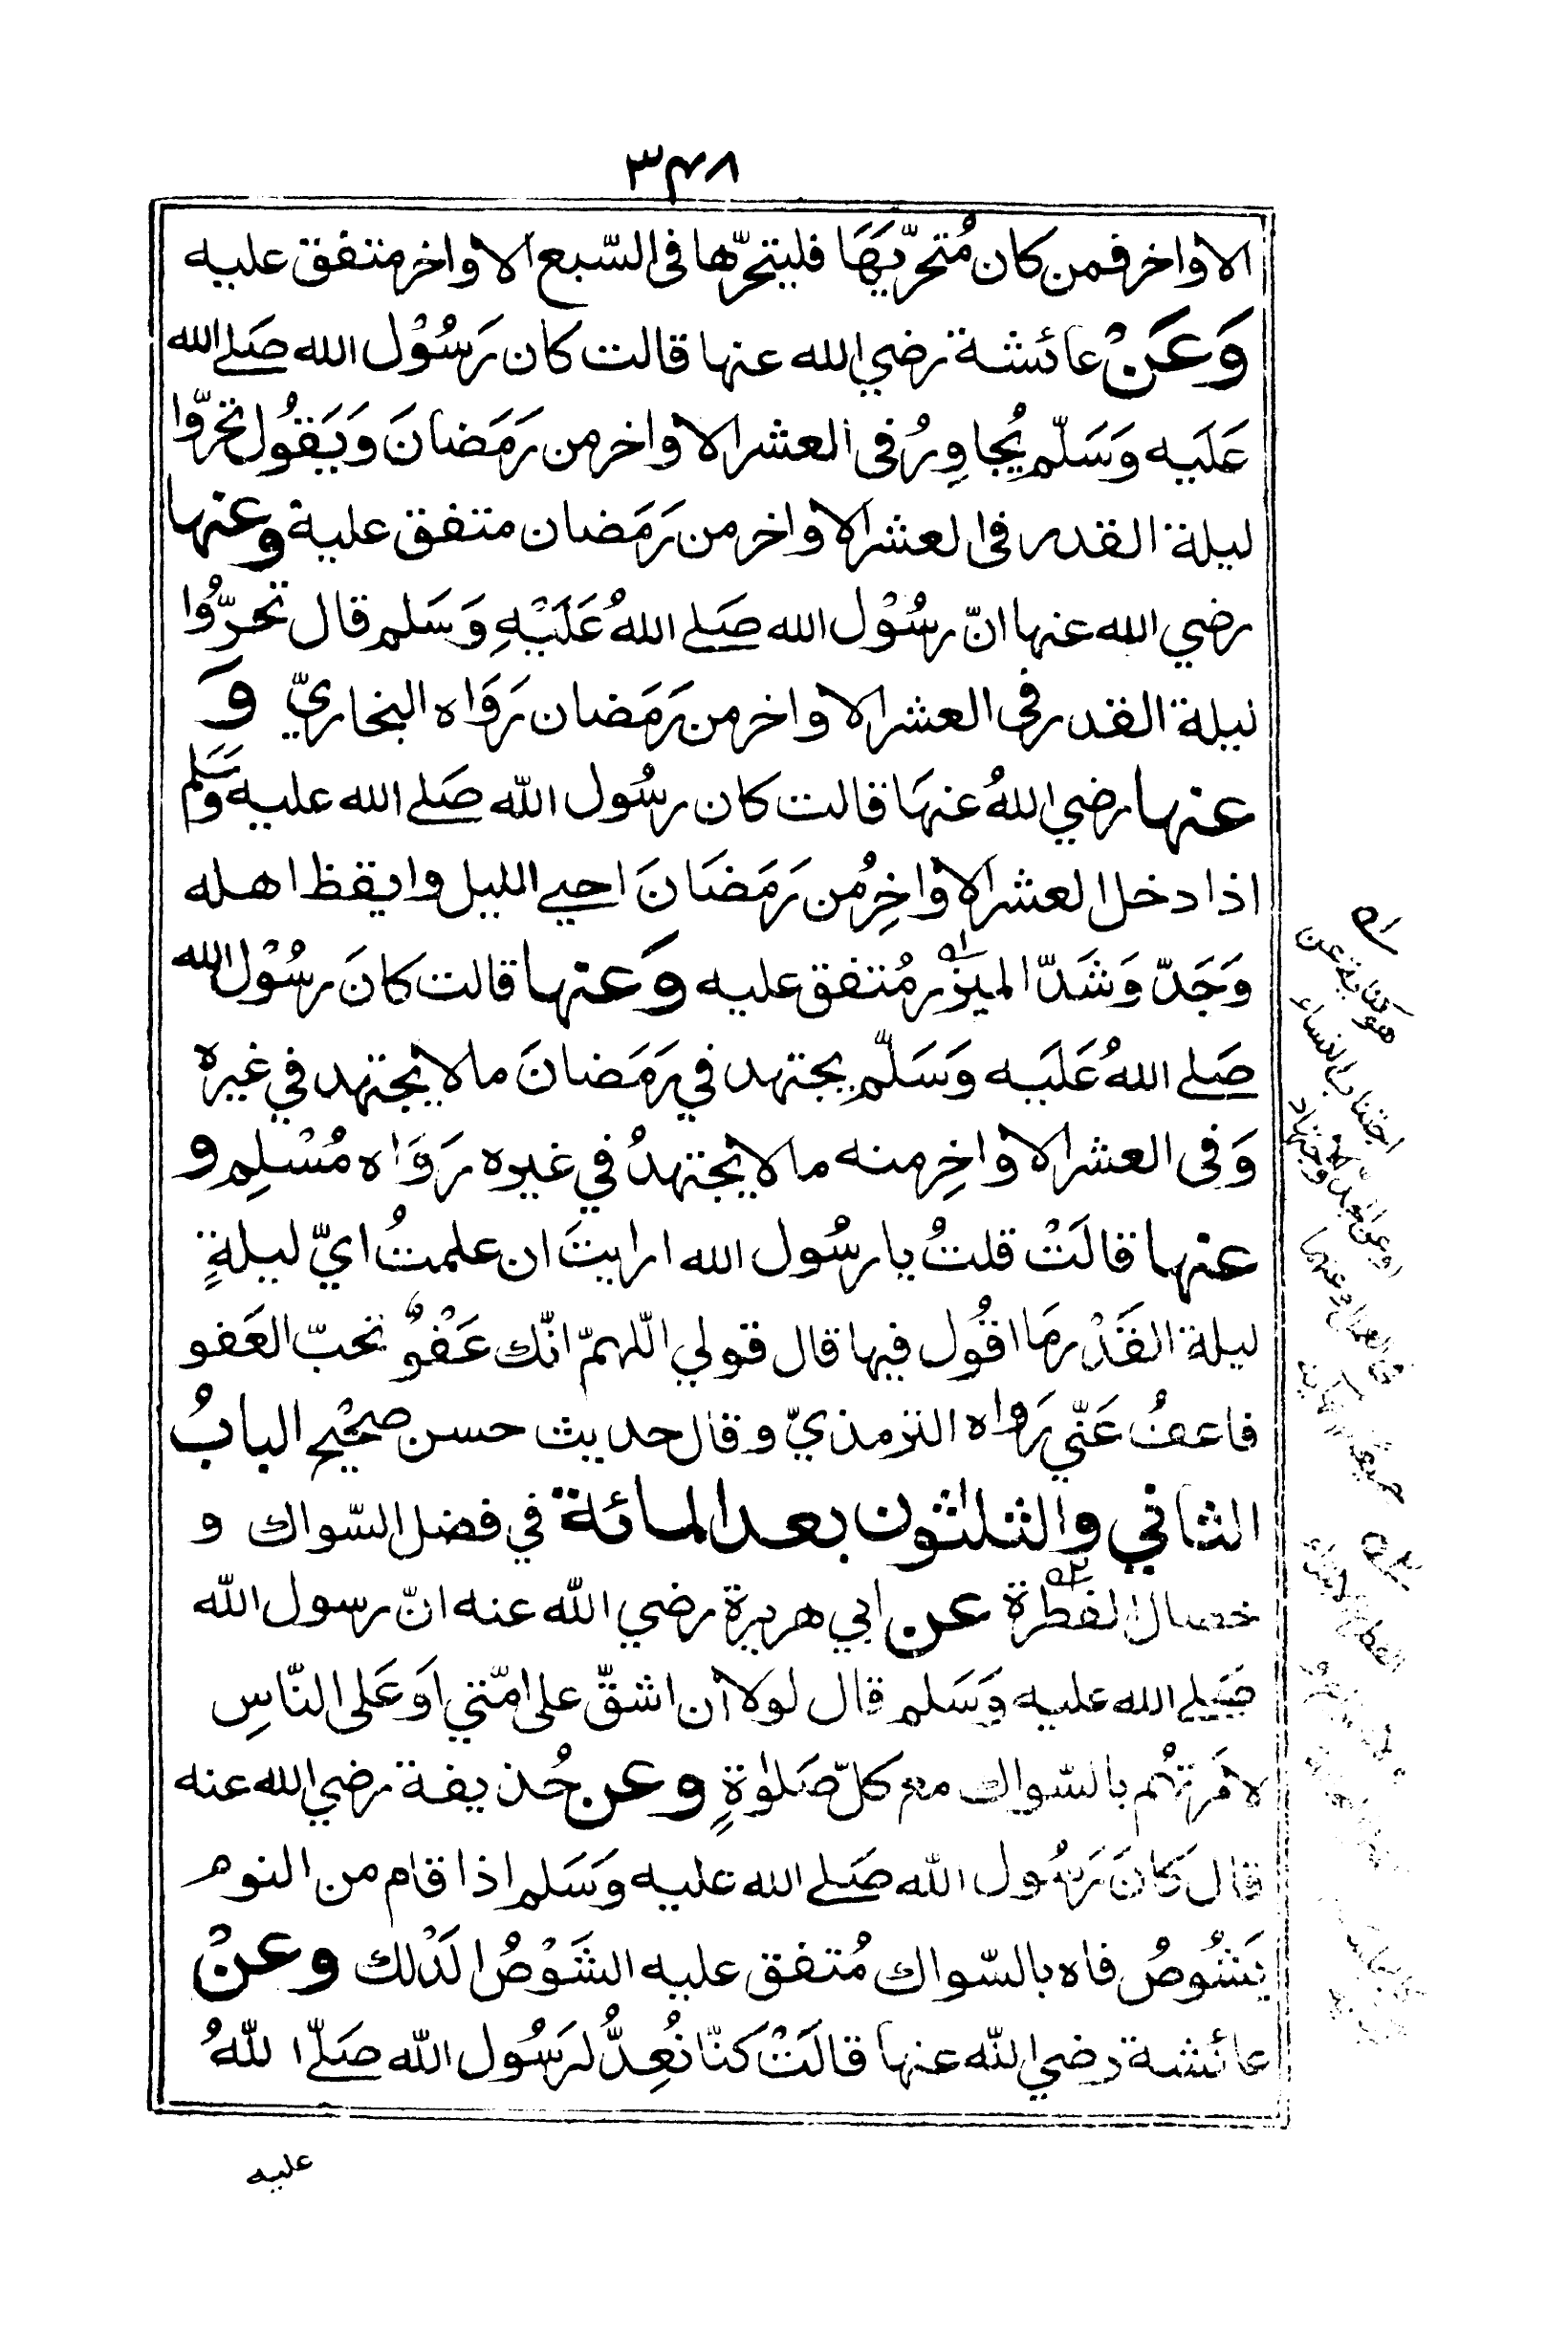 ٣٤٨
الاواخر فمن كان مُتحرّيَهَا فليتحرّها فى السّبع الاواخر متفق عليه
وَعَنْ عائشة رضي الله عنها قالت كان رَسُوْل الله صَلے الله
عَلَيه وَسَلّم يُجاوِرُ فى العشر الاواخر من رَمَضانَ وَيَقُول تحرّوا
ليلة القدر فى العشر الاواخر من رَمَضان متفق علية وعنها
رضي الله عنها انّ رسُوْل الله صَلے اللهُ عَلَيْهِ وَسَلم قال تحرّوُا
ليلة القدر فى العشر الاواخر من رَمَضان رَوَاه البخاريّ وَ
عنها رضي اللهُ عنهَا قالت كان رسُول الله صَلے الله عليه وَسَلم
اذا دخل العشر الاواخِرُ من رَمَضَانَ احيے الليل وايقظ اهله
وَجَدّ وَشَدّ الميزر مُتفق عليه وَعنها قالت كانَ رسُوْل الله
صَلے اللهُ عَلَيه وَسَلّم يجتهد في رَمَضانَ مالا يجتهد في غيره
وَفى العشر الاواخِر منه مالا يجتهدُ في غيره رَوَاه مُسْلِم و
عنها قالَتْ قلتُ يا رسُول الله ارايتَ ان علمتُ ايّ ليلةٍ
ليلة القَدْر مَا اقُول فيها قال قولي اللّهمّ انّك عَفْوٌ تحبّ العَفو
فاعفُ عَنّي رَواه الترمذيّ وقال حديث حسن صحِيْح البابُ
الثاني والثلثون بعد المائة في فضل السّواك و
خصال الفطرة عن ابي هريرة رضي الله عنه انّ رسول الله
صَلے الله عليه وَسَلم قال لولا أن اشقّ على امّتي اَو عَلى النّاسِ
لامرتهُم بالسّواك مع كلّ صَلوٰةٍ وعن حُذيفة رضي الله عنه
قالَ كانَ رَسُول الله صَلے الله عليه وَسَلم اذا قام من النوم
يَشُوصُ فاه بالسّواك مُتفق عليه الشَوْصُ الَدْلك وعنْ
عائشة رضي الله عنها قالَتْ كنّا نُعِدُّ لرَسُول الله صَلّے اللهُ
عليه
هو كناية عن
اجتناب النساء